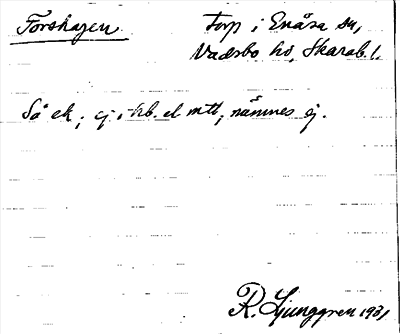 Forshagen Torp i Enåsa sn,
Vadsbo hd, Skarab. l.
Så ek.; ej i hb. el mtl, nämnes ej.
R. Ljunggren 1931